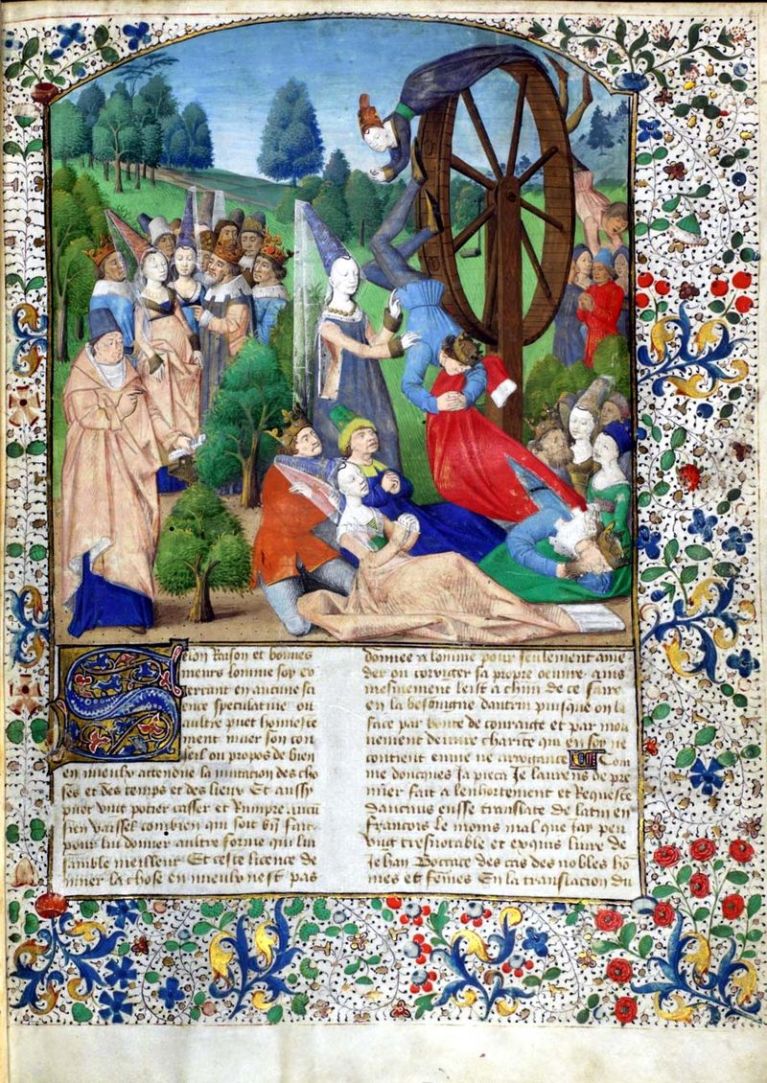 Selon Raison et bonnes
meurs lomme soy ex
ercant en aucune sci
ence speculatiue ou
aultre puet honneste
ment muer son con
seil ou propos de bien
en mieulx attendue la mutation des cho
ses et des temps et des lieux Et aussy
puet vng potier casser et Rompre aucun
sien vaissel combien qui soit bn fait
pour lui donner aultre forme qui lui
samble meilleur Et ceste licence de
muer la chose en mieulx nest pas
donnee a lomme pour seulement ame
der ou corriger sa propre oeuure ains
mesmement leist a chun de ce faire
en la besoingne dautrui puisque on la
face par bonte de couraige et par mou
uement de vraye charite qui en soy ne
contient enuie ne arrogance Com
me doncques Ja pieca Je laurens de pre
mier fait a lenhortement et Requeste
daucuns eusse translate de latin en
francois le moins mal que iay peu
vng tresnotable et exquis liure de
Jehan Boccace des cas des nobles ho
mes et femes En la translation du